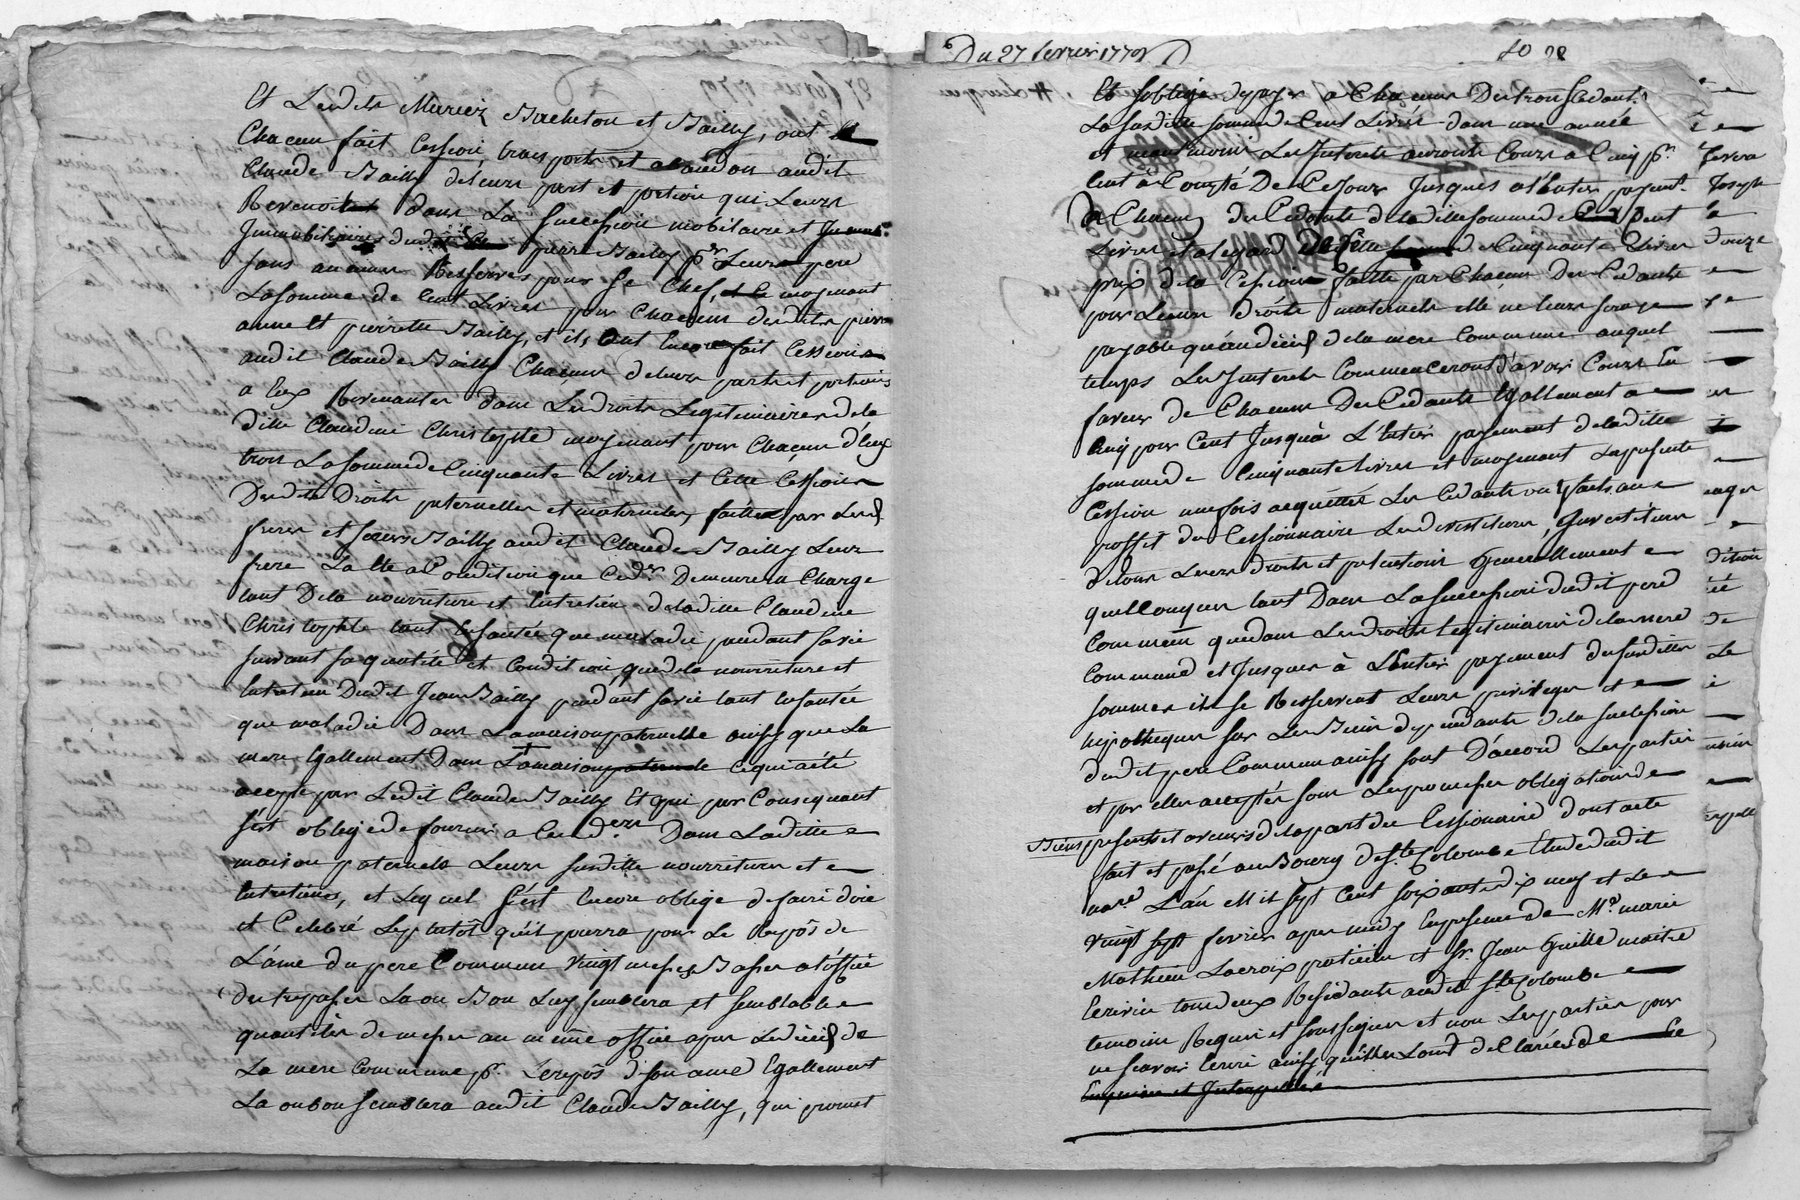 Et Lesdits Murier Bacheton et Bailly, ont
Chacun fait Cession, transports et abandon audit
Claude Bailly deleurs part et portion qui Leurs
Reviennent dans La succession mobiliaire et
Immobiliaires dud. pierre Bailly pr. Leurs pere
sans aucune Resserves pour Ce Chef, moyenant
La somme de Cent Livres pour Chacun desdits pierre
anne et pierrette Bailly, et ils ont Encore fait Cession
audit Claude Bailly Chacuns deleurs parts et portions
a Eux Revenantes dans Les droits Legitimaires dela
ditte Claudine Christophle moyenant pour Chacun d'Eux
trois La somme de Cinquante Livres et Cette Cession
Desdits Droits paternelles et maternelles, faitte par Lesd.
freres et soeurs Bailly audit Claude Bailly Leur
frere La Ete a Condition que Cedr. Demeurera Charge
tant Dela nourriture et Entretien deladitte Claudine
Christophle tant En santée que maladie pendant sa vie
suivant sa qualité et Condition, que de la nourriture et
Entretien Dudit Jean Bailly pendant sa vie tant En santée
que maladie Dans La maison paternelle ainsy que La
mere Egallement Dans La maison paternelle Ce qui a été
accepté par Ledit Claude Bailly Et qui par Consequant
s'est obligé de fournir a Cesd.ers Dans Laditte
maison paternelle Leurs susditte nourriture et
Entretiens, et Lequel s'est Encore obligé de faire dire
et Celebré Leplutôt qu'il pourra pour Le Repôs de
L'ame du pere Commun vingt messes Basses a L'office
Des trepassés La ou Bon Luy semblera, et semblable
quantités de messes au même office apres Le décès de
La mere Commune pr. Le repôs de son ame Egallement
La ou bon semblera audit Claude Bailly, qui promet
Du 27 fevrier 1779
Et soblige de payer a Chacun Des trois Cedants
La susditte somme de Cent Livres dans une année
et Les Interets auront Cours a Cinq pr.
Cent à Compté De Ce Jour Jusques a l'Entier payemt.
a Chacun des Cedants de laditte somme de Cent
Livres, et a legard de Cette de Cinquante Livres
prix de la Cession faitte par Chacun Des Cedants
pour Leurs Droits maternels elle ne leurs sera
payable qu'au décès de la mere Commune auquel
temps Les Interets Commencerons d'avoir Cours En
faveur de Chacun Des Cedants Egallement a
Cinq pour Cent Jusquà L'Entier payement deladitte
somme de Cinquante Livres et moyenant La presente
Cession une fois acquittée Les Cedants
proffit du Cessionnaire Les devestitures, Investitures
de tous Leurs droits et pretentions Generallement
quelconques tant Dans La succession dudit pere
Commun que dans Les droits legitimaires de la mere
Commune et Jusques à L'Entier payement des susdittes
sommes ils se Resservent Leurs privileges et
hipotheques sur Les Biens dependants de la succession
dudit pere Commun ainsy sont D'accord Les parties
et par elles acceptés sous Les promesses obligations de
Biens presents et avenirs de la part du Cessionaire dont acte
fait et passé au Bourg de Ste. Colombe Etude dudit
nore. L'an Mil sept Cent soixante dix neuf et Le
vingt sept fevrier apres midy En presence de Me. marie
Mathieu Lacroix praticien et Sr. Jean Guille maitre
Ecrivin tous deux Residants audit Ste. Colombe
temoins Requis et soussignes et non Les parties pour
ne scavoir Ecrire ainsy qu'elles L'ont declarées de Ce
Enquises et Interpellé